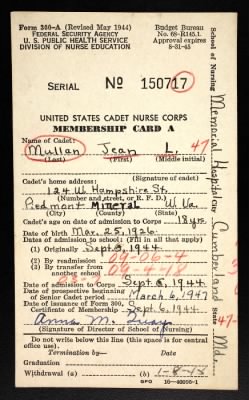 Form 300-A (Revised May 1944)
FEDERAL SECURITY AGENCY
U. S. PUBLIC HEALTH SERVICE
DIVISION OF NURSE EDUCATION
Budget Bureau
No. 68-R145.1.
Approval expires
8-31-45
SERIAL No 150717
UNITED STATES CADET NURSE CORPS
MEMBERSHIP CARD A
Name of Cadet:
Mullan Jean L. 47
(Last) (First) (Middle initial)
Cadet's home address: (Signature of cadet)
124 W. Hampshire St.
(Number and street, or R. F. D.)
Piedmont Mineral W. Va.
Cadet's age on date of admission to Corps 18 yrs.
Date of birth Mar. 25, 1926.
Dates of admission to school: (Fill in all that apply)
(1) Originally Sept. 5, 1944.
(2) By readmission 09-06-4
(3) By transfer from
another school 09-4-18
Date of admission to Corps Sept. 5, 1944.
Date of prospective beginning
of Senior Cadet period March 6, 1947
Date of issuance of Form 300,
Certificate of Membership Sept. 6, 1944.
Anna M.
(Signature of Director of School of Nursing)
Do not write below this line (this space is for central
office use).
Termination by— Date
Graduation
Withdrawal (a) (b) 1-8-18
GPO 16-40098-1
School of Nursing Memorial Hospital
City Cumberland State Md.
47-
3